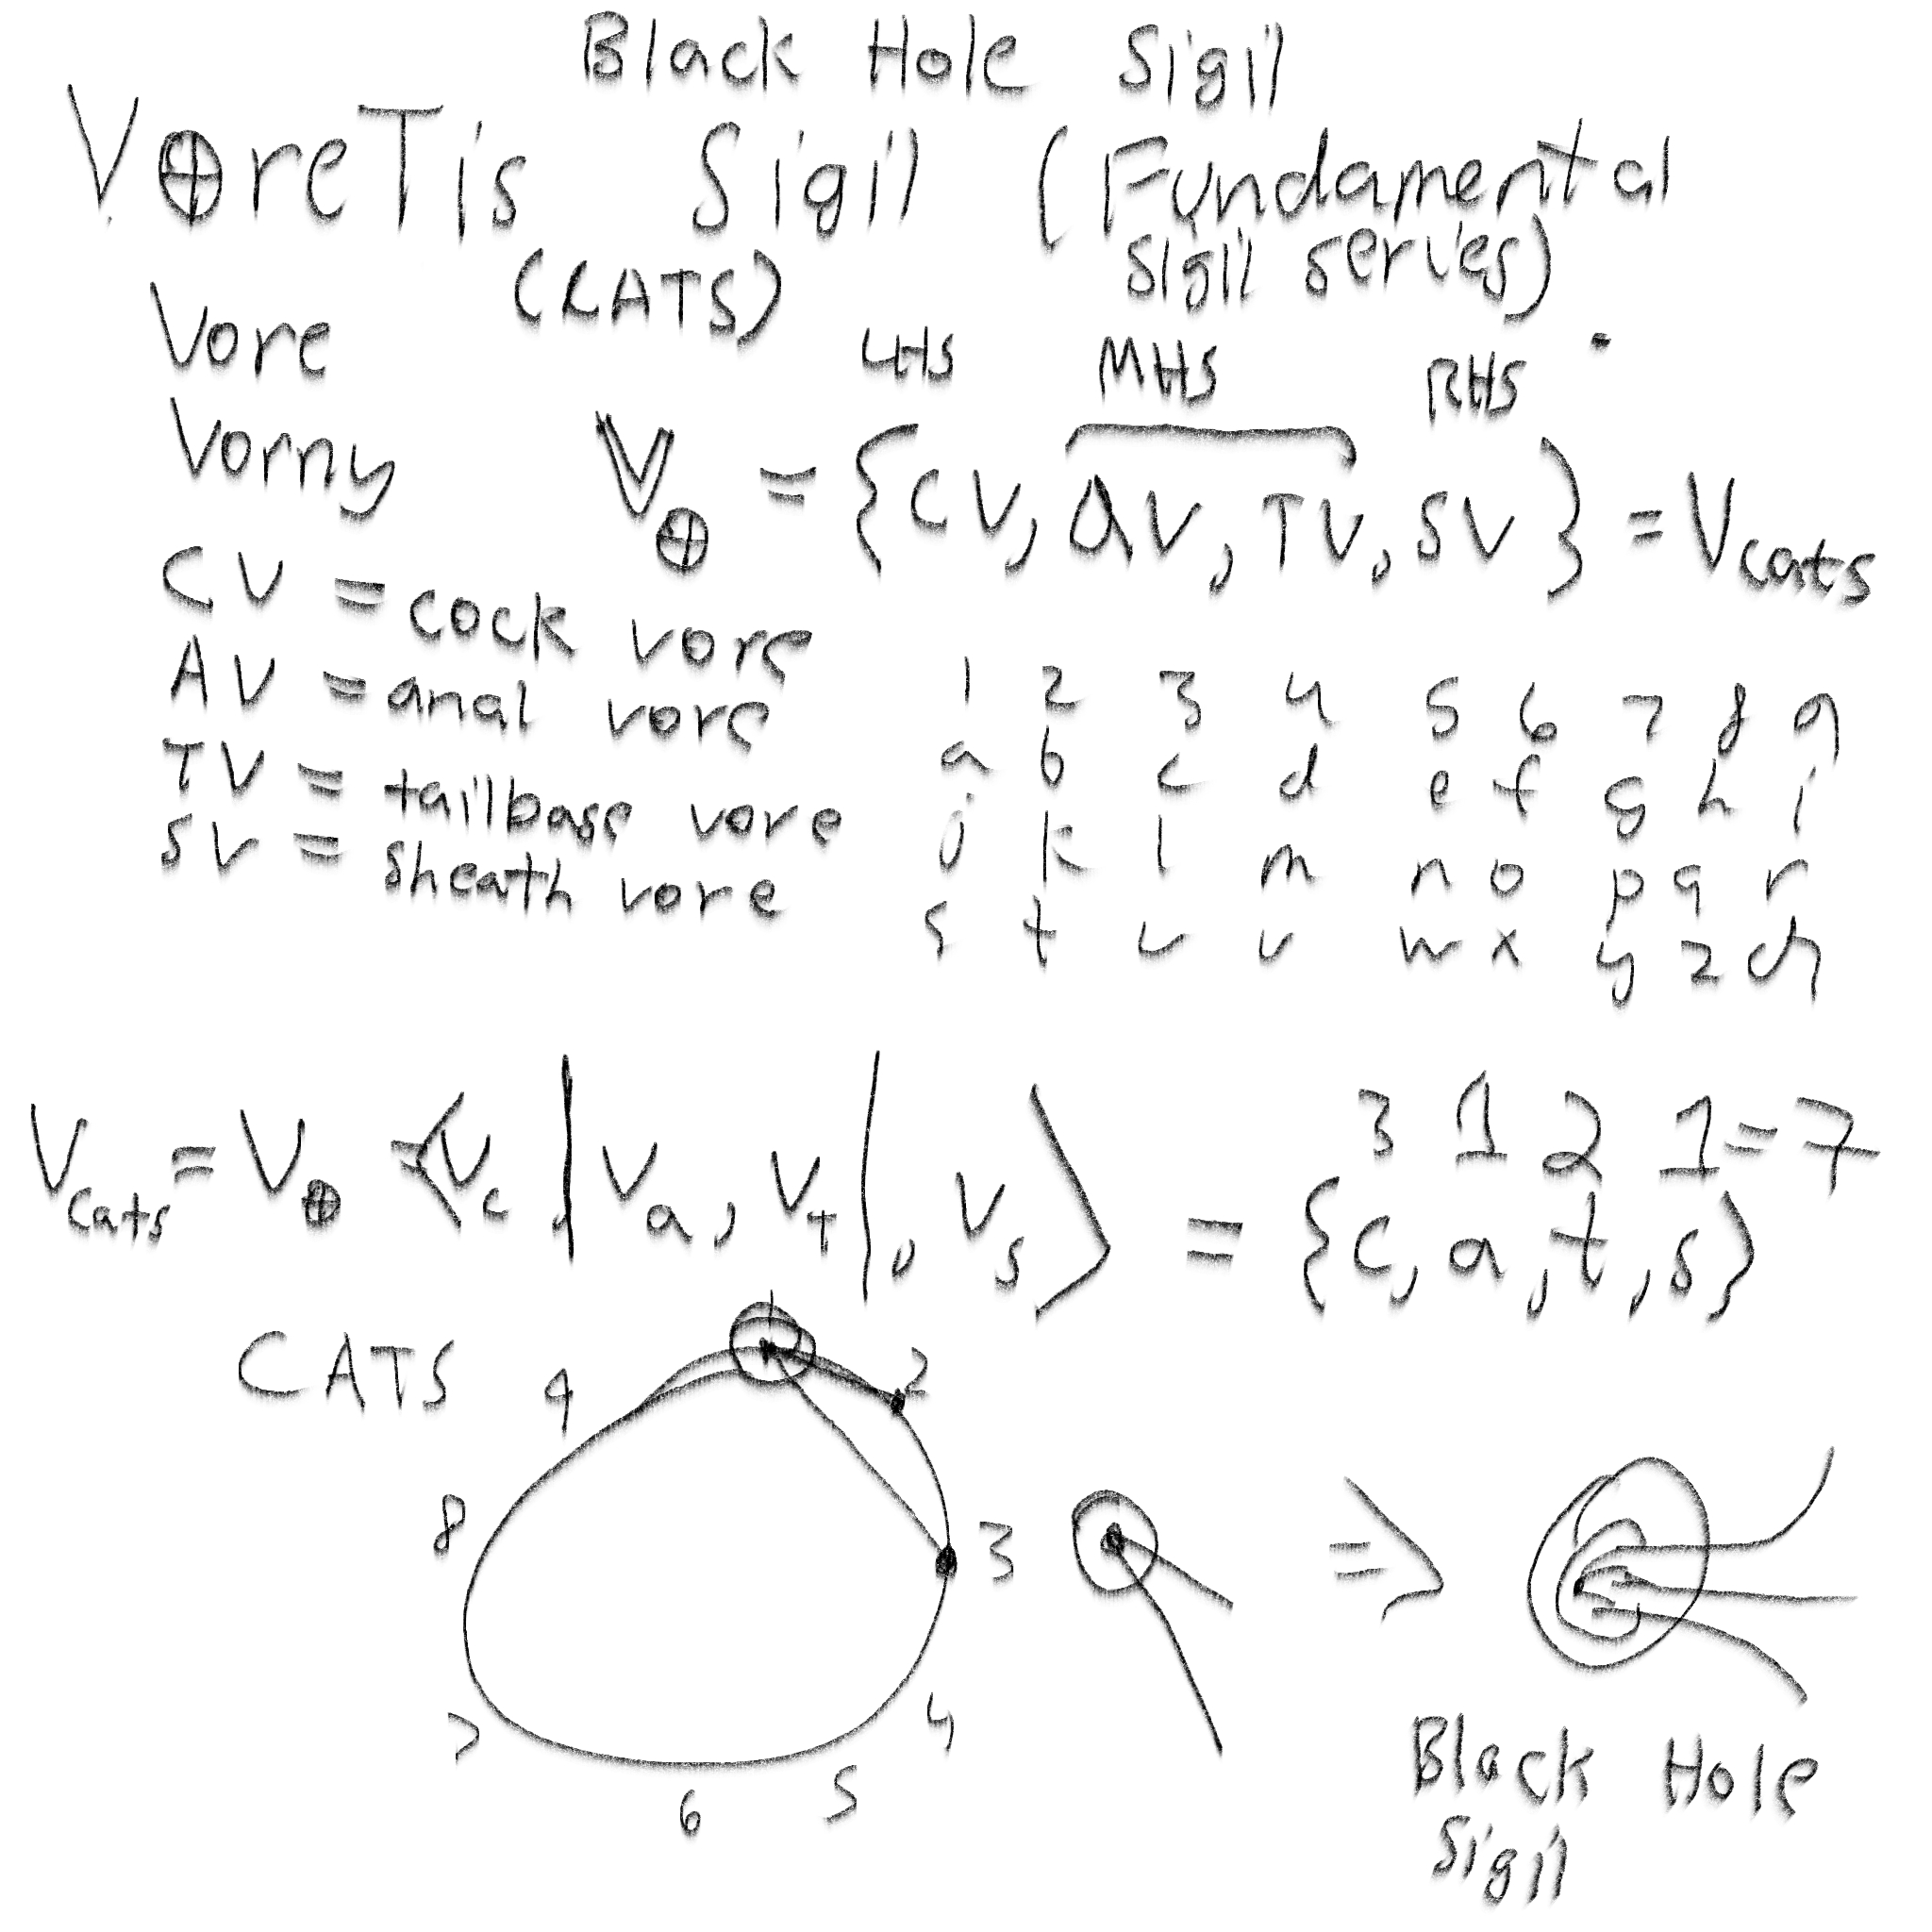 Black Hole Sigil
V⊕reTis Sigil (Fundamental
sigil series)
(CATS)
Vore
LHS MHS RHS
Vorny V⊕ = {CV, AV, TV, SV} = Vcats
CV = cock vore
AV = anal vore
TV = tailbase vore
SV = sheath vore
1 2 3 4 5 6 7 8 9
a b c d e f g h i
j k l m n o p q r
s t u v w x y z ch
3 1 2 1 = 7
Vcats = V⊕ = <Vc, | Va, VT |, Vs> = {c, a, t, s}
CATS
1
2
3
4
5
6
7
8
9
=>
Black Hole
Sigil